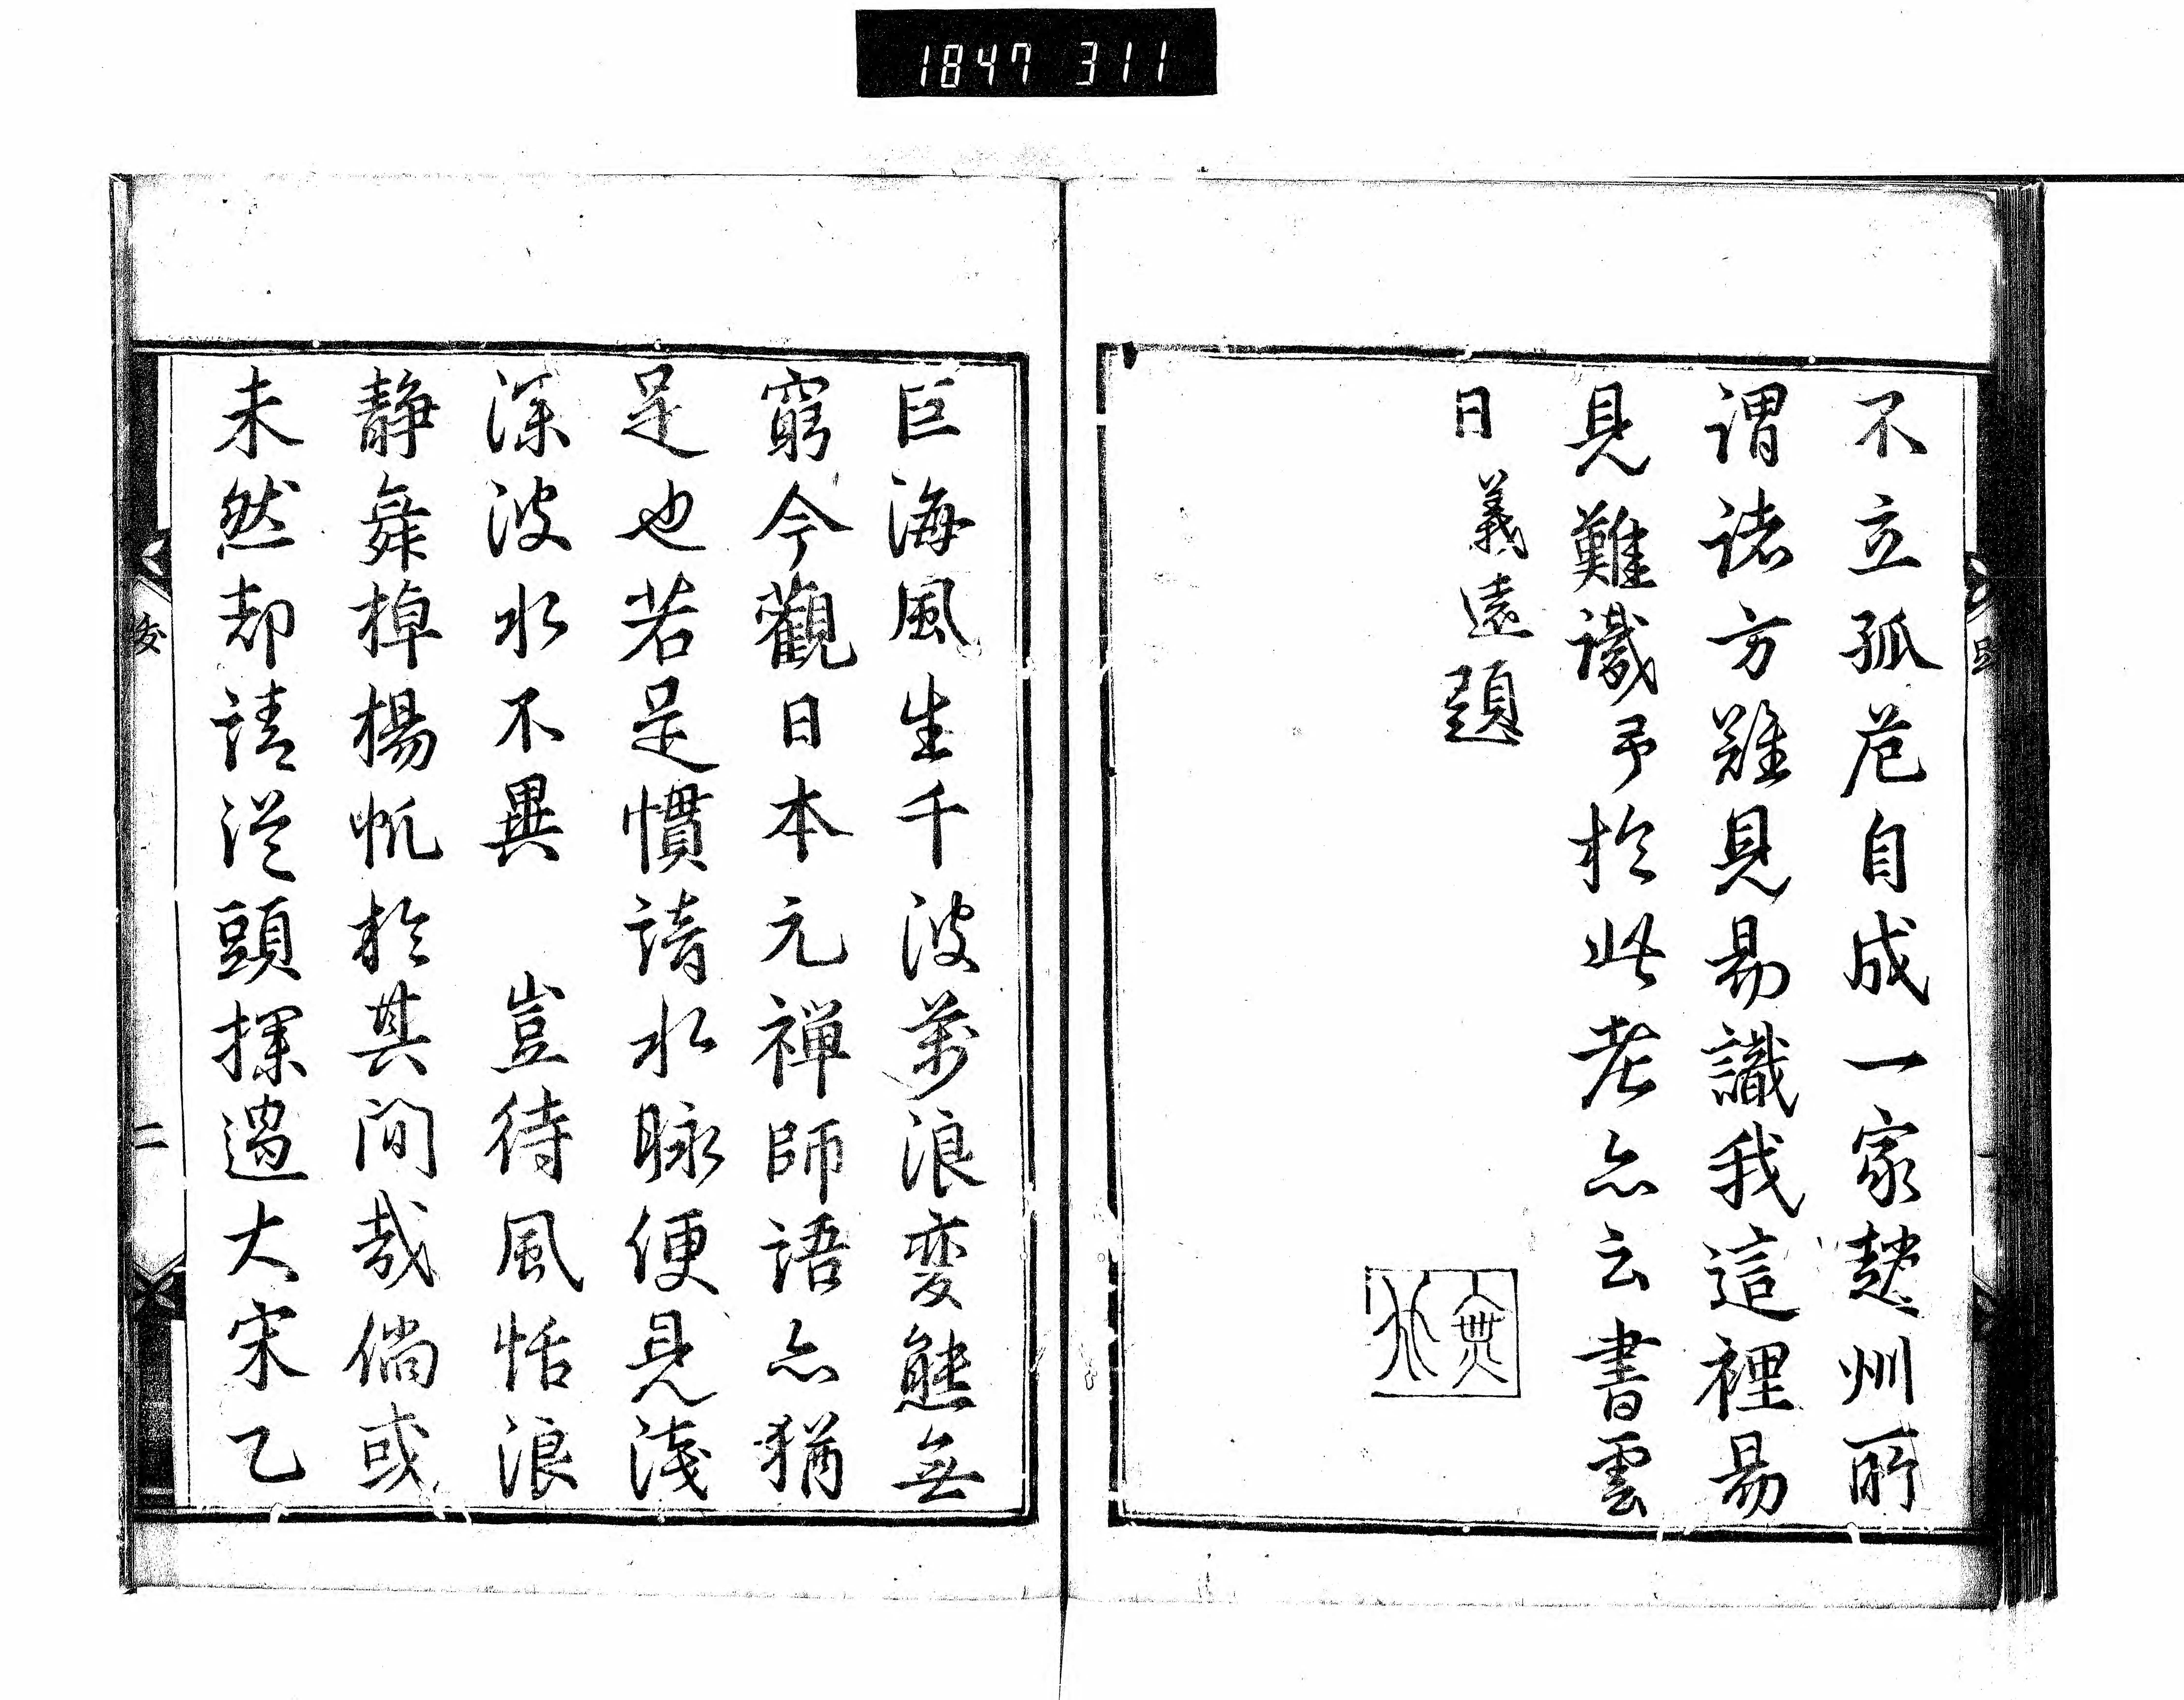 1847 311
不立孤危自成一家趙州所
謂諸方難見易識我這裡易
見難識予於此老亦云書雲
日 義遠題
無外
巨海風生千波萬浪變態無
窮今觀日本元禅師語亦猶
是也若是慣諳水脉便見淺
深波水不異 豈待風恬浪
静舞棹揚帆於其間哉倘或
未然却請從頭探過大宋乙
二